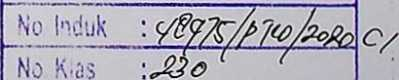 No Induk : 48975/PTKO/2020 C1
No Klas : 230